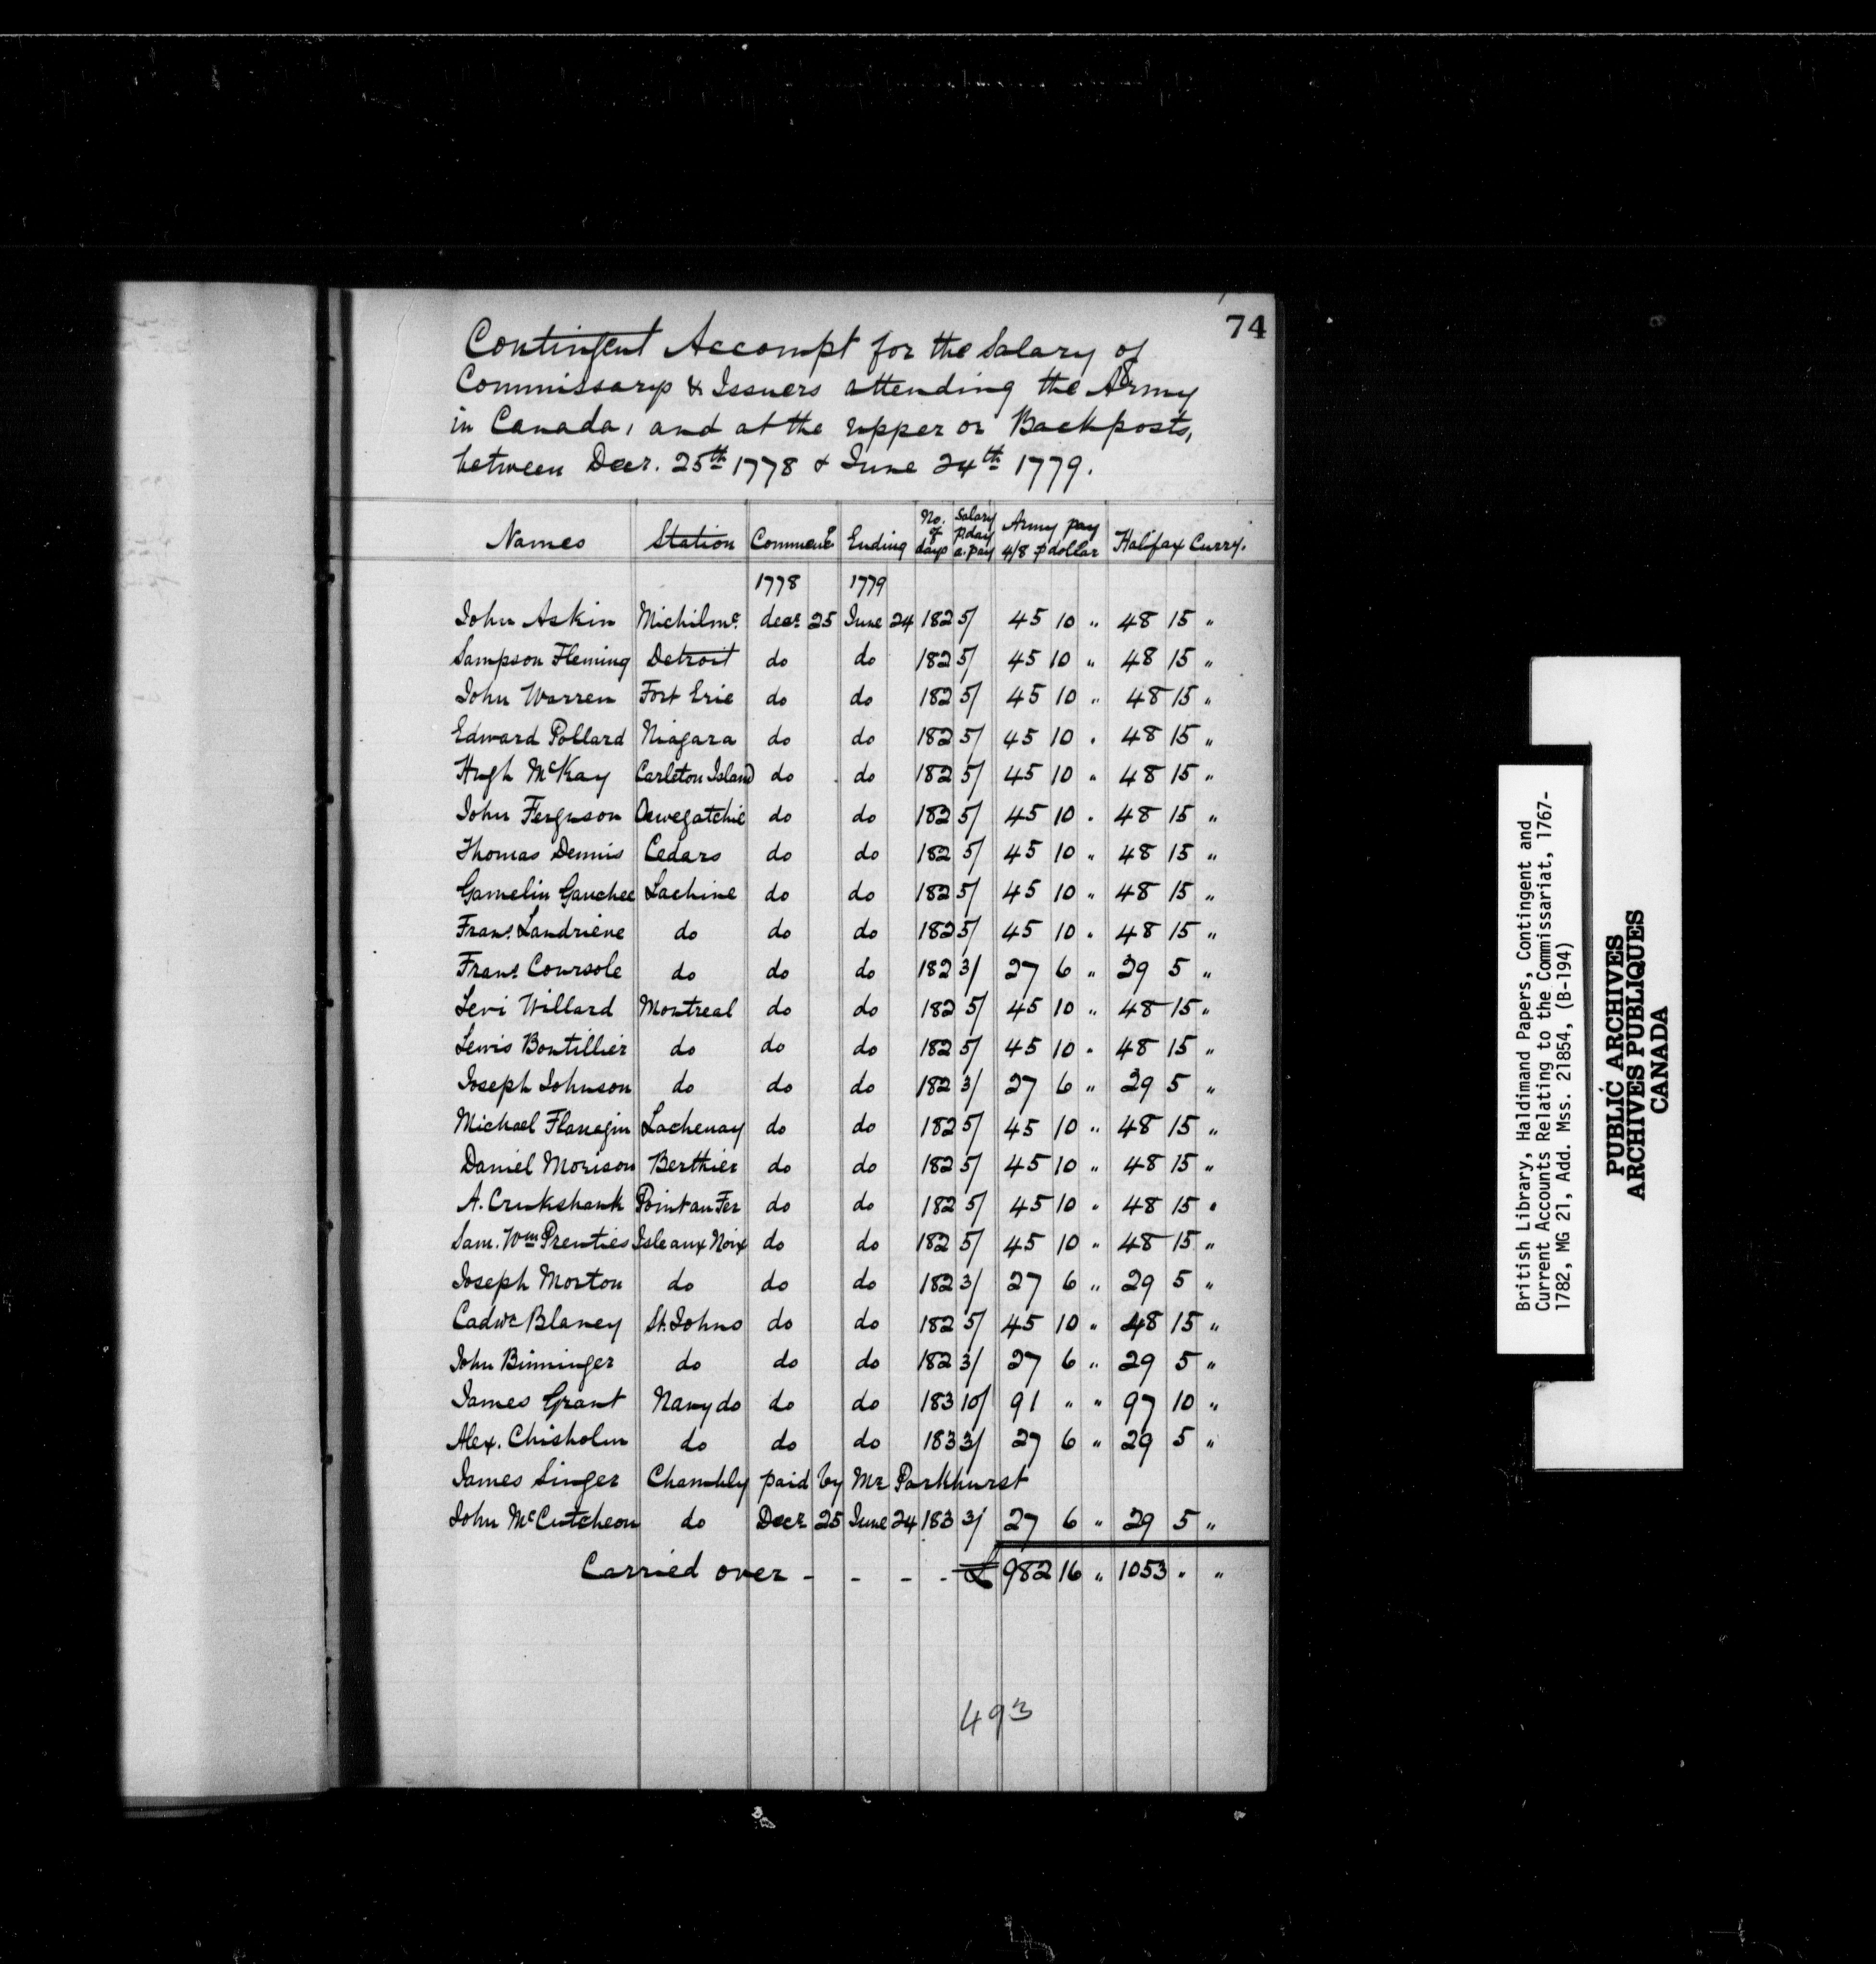 74
Contingent Accompt for the Salary of
Commissarys & Issuers attending the Army
in Canada, and at the upper or Backposts,
between Decr. 25th 1778 & June 24th 1779.
Names Station Commenc'g Ending No. of days Salary p. day a. pay Army pay 4/8 p dollar Halifax Curry.
1778 1779
John Askin Michilmc. decr. 25 June 24 182 5/ 45 10 " 48 15 "
Sampson Fleming Detroit do do 182 5/ 45 10 " 48 15 "
John Warren Fort Erie do do 182 5/ 45 10 " 48 15 "
Edward Pollard Niagara do do 182 5/ 45 10 " 48 15 "
Hugh McKay Carleton Island do do 182 5/ 45 10 " 48 15 "
John Ferguson Oswegatchie do do 182 5/ 45 10 " 48 15 "
Thomas Dennis Cedars do do 182 5/ 45 10 " 48 15 "
Gamelin Gauchee Lachine do do 182 5/ 45 10 " 48 15 "
Frans. Landriene do do do 182 5/ 45 10 " 48 15 "
Frans. Coursole do do do 182 3/ 27 6 " 29 5 "
Levi Willard Montreal do do 182 5/ 45 10 " 48 15 "
Lewis Boutillier do do do 182 5/ 45 10 " 48 15 "
Joseph Johnson do do do 182 3/ 27 6 " 29 5 "
Michael Flanagin Lachenay do do 182 5/ 45 10 " 48 15 "
Daniel Morison Berthier do do 182 5/ 45 10 " 48 15 "
A. Crukshank Point au Fer do do 182 5/ 45 10 " 48 15 "
Sam. Wm Prenties Isle aux Noix do do 182 5/ 45 10 " 48 15 "
Joseph Morton do do do 182 3/ 27 6 " 29 5 "
Cadwr Blaney St. Johns do do 182 5/ 45 10 " 48 15 "
John Binninger do do do 182 3/ 27 6 " 29 5 "
James Grant Navy do do do 183 10/ 91 " " 97 10 "
Alex. Chisholm do do do 183 3/ 27 6 " 29 5 "
James Singer Chambly paid by Mr Parkhurst
John McCutcheon do Decr 25 June 24 183 3/ 27 6 " 29 5 "
Carried over - - - - £ 982 16 " 1053 " "
493
British Library, Haldimand Papers, Contingent and
Current Accounts Relating to the Commissariat, 1767-
1782, MG 21, Add. Mss. 21854, (B-194)
PUBLIC ARCHIVES
ARCHIVES PUBLIQUES
CANADA